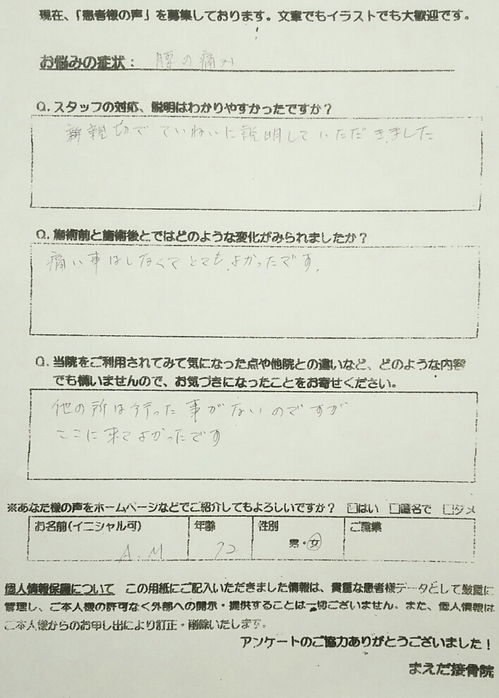 現在、「患者様の声」を募集しております。文章でもイラストでも大歓迎です。
お悩みの症状: 腰の痛み
Q.スタッフの対応、説明はわかりやすかったですか?
親切で ていねいに説明していただきました
Q.施術前と施術後とではどのような変化がみられましたか?
痛い事はしなくてとてもよかったです。
Q.当院をご利用されてみて気になった点や他院との違いなど、どのような内容
でも構いませんので、お気づきになったことをお寄せください。
他の所は行った事がないのですが
ここに来てよかったです
※あなた様の声をホームページなどでご紹介してもよろしいですか? □はい □匿名で □ダメ
お名前(イニシャル可) 年齢 性別 ご職業
A.M 72 男・女
個人情報保護について この用紙にご記入いただきました情報は、貴重な患者様データとして厳重に
管理し、ご本人様の許可なく外部への開示・提供することは一切ございません。また、個人情報は
ご本人様からのお申し出により訂正・削除いたします。
アンケートのご協力ありがとうございました!
まえだ接骨院